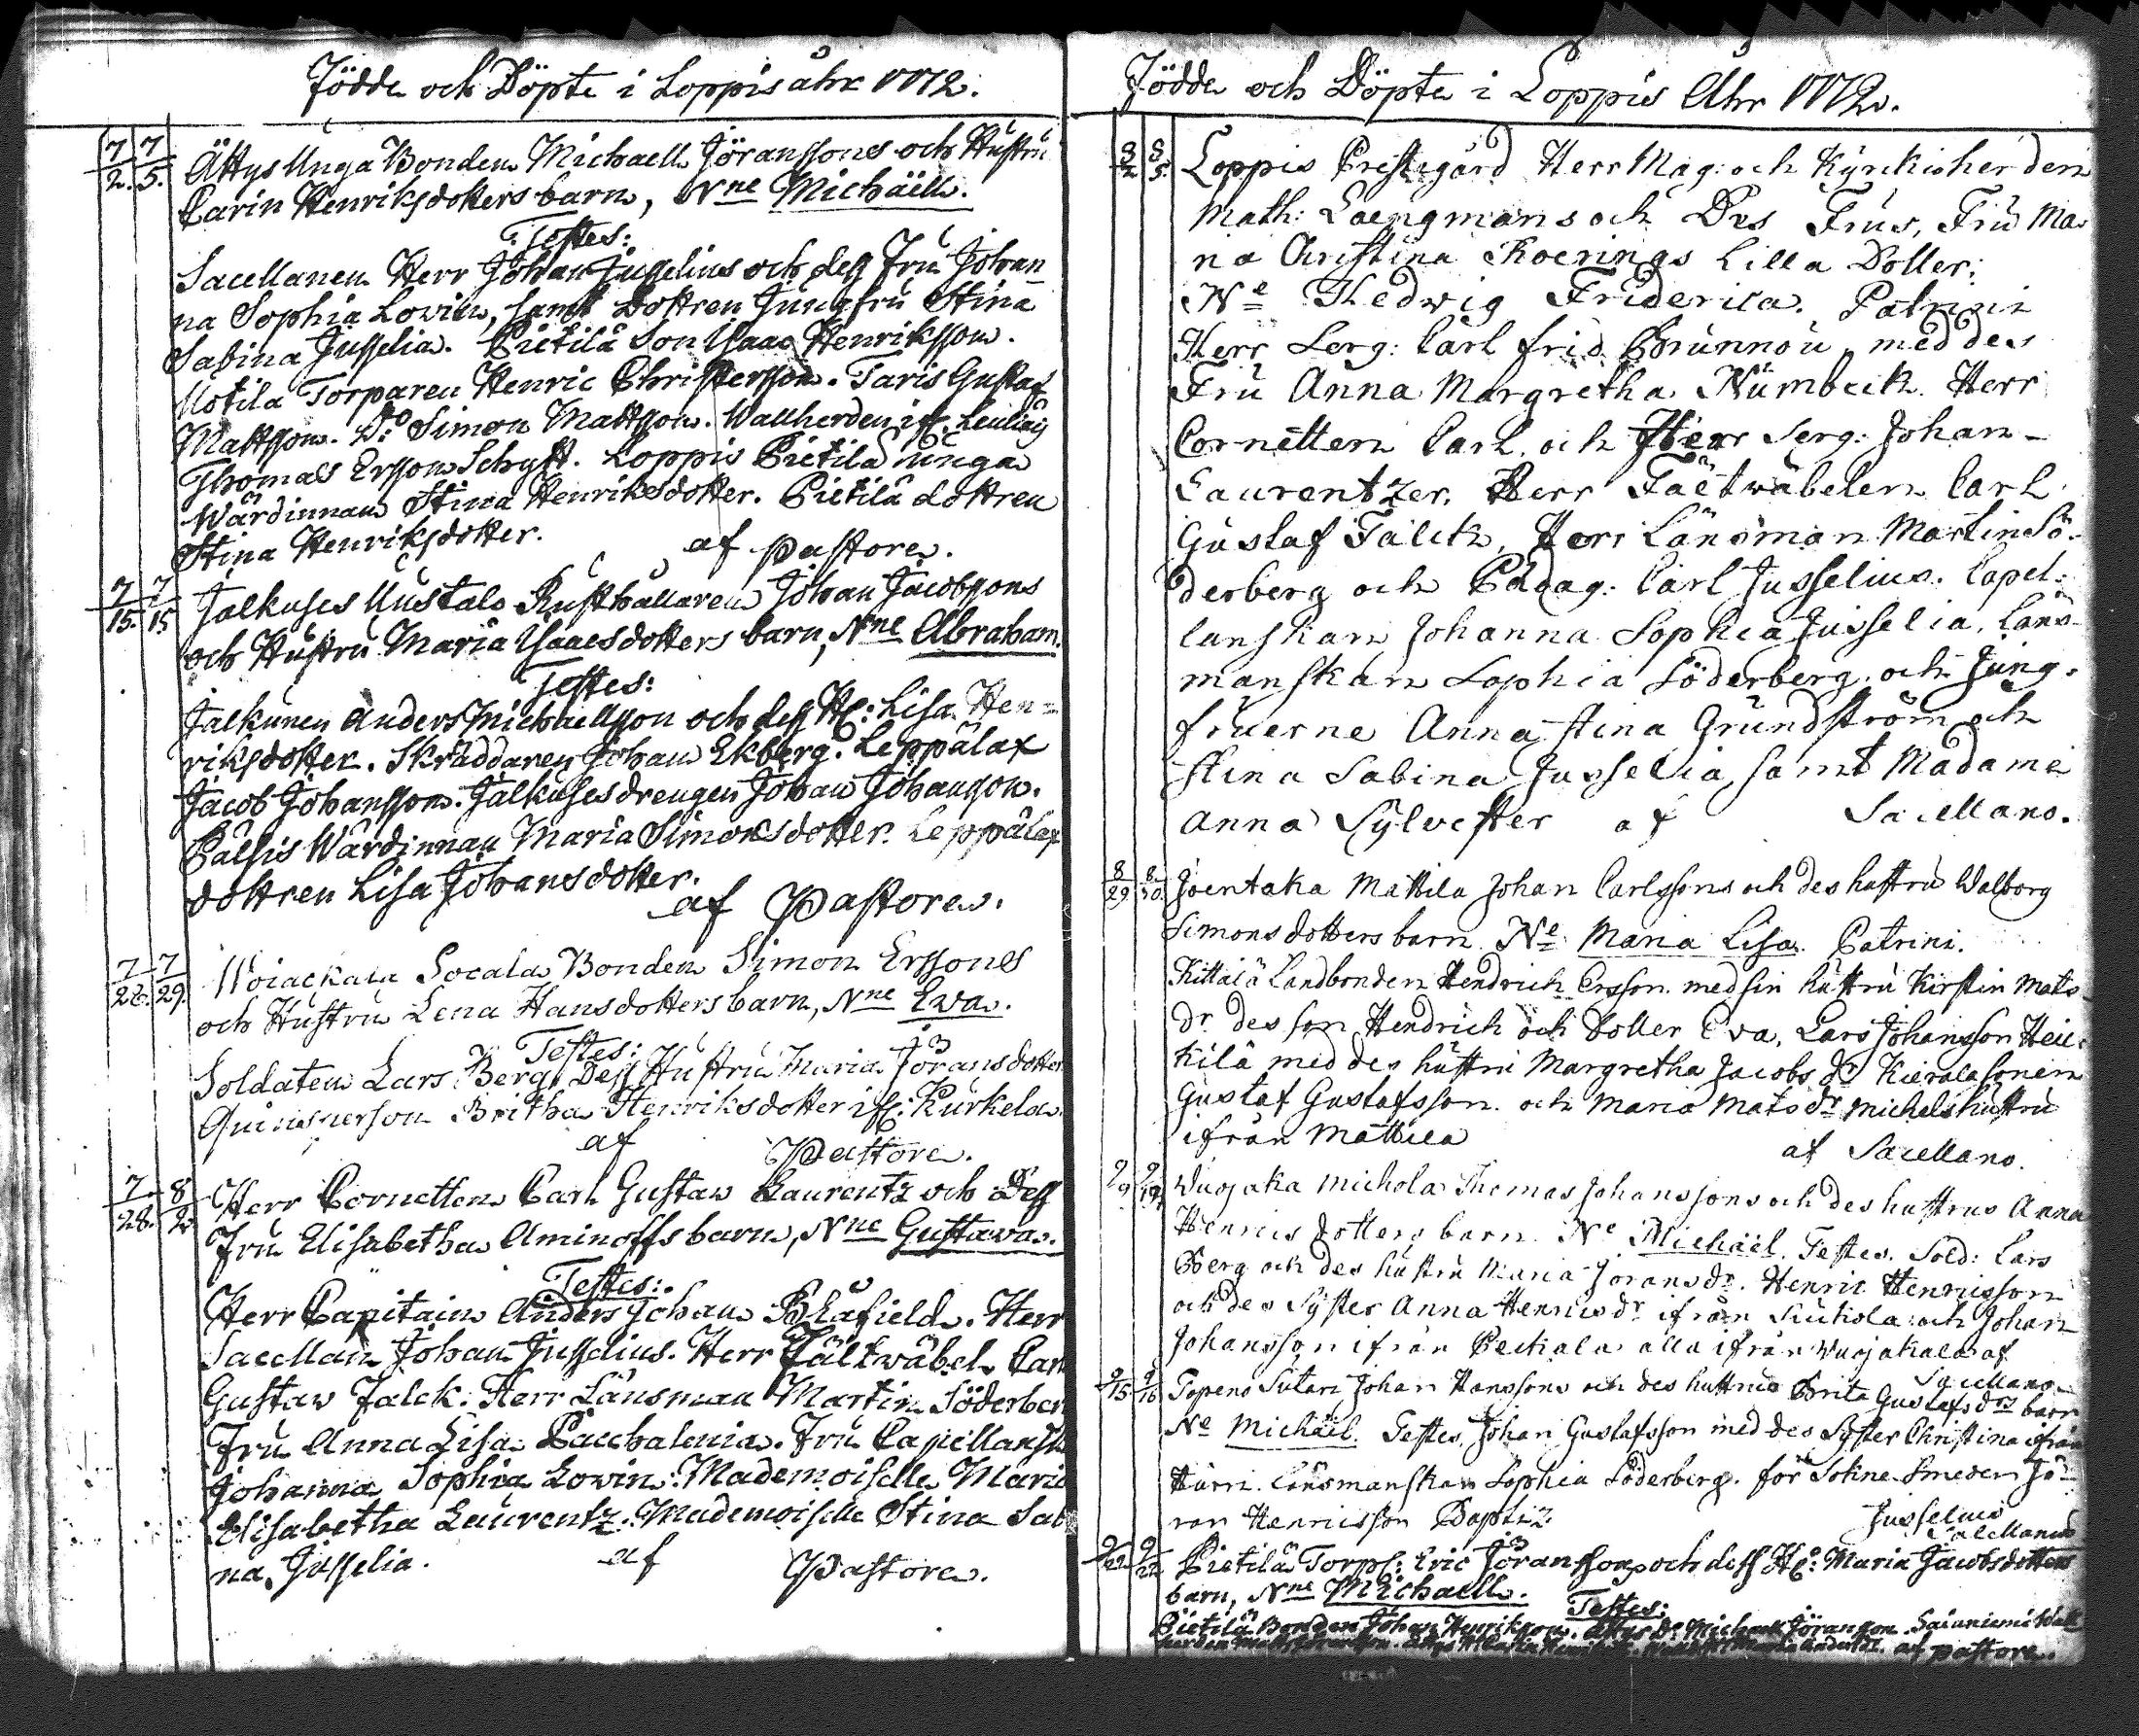 Födde och Döpte i Loppis åhr 1772.
7 7 Ättys Unga Bonden Michaell Jöranssons och Hustru
2. 5. Carin Henriksdotters barn, Nne Michaell.
Testes:
Sacellanen Herr Johan Jusselius och dess Fru Johan
na Sophia Lovin, samt Dottren Jungfru Stina
Sabina Jusselia. Pietilä Son Isaac Henriksson.
Uotila Torparen Henric Christersson. Taris Gustaf
Mattsson. Do Simon Mattsson. Wallherden
Thomas Ersson Schyft. Loppis Pietilä unga
Wärdinnan Stina Henriksdotter. Pietilä dottren
Stina Henriksdotter. af Pastore.
7 7 Jalkuses Uustalo Rusthållaren Johan Jacobssons
15. 15 och Hustru Maria Isaacsdotters barn, Nne Abraham.
Testes:
Jalkunen Anders Michaellsson och dess H: Lisa Hen=
riksdotter. Skräddaren Johan Ekberg. Leppälax
Jacob Johansson. Jalkuses drengen Johan Johansson.
Pälsis Wärdinnan Maria Simonsdotter. Leppälax
dottren Lisa Johansdotter.
af Pastore.
7 7 Woiackala Socala Bonden Simon Erssons
26. 29. och Hustru Lena Hansdotters barn, Nne Ewa.
Testes:
Soldaten Lars Berg, Dess Hustru Maria Jöransdotter
Quinsperson Britha Henriksdotter if: Kurkela.
af Pastore.
7. 8 Herr Cornetten Carl Gustav Laurentz och Dess
28. 2 Fru Elisabetha Aminoffs barn, Nne Gustava.
Testes:
Herr Capitain Anders Johan Blåfield. Herr
Sacellan Johan Jusselius. Herr Fältwäbel Carl
Gustav Falck. Herr Länsman Martin Söderber
Fru Anna Lisa Paechalenia. Fru Capellansk
Johanna Sophia Lovin. Mademoiselle Maria
Elisabetha Laurentz. Mademoiselle Stina Sabi
na Jusselia. af Pastore.
Födde och Döpte i Loppis Åhr 1772.
8 8 Loppis Prestegård Herr Mag: och Kyrckioherden
2 5. Math: Laengmans och Des Frus, Fru Ma
ria Christina Roerings Lilla Dotter:
Ne Hedwig Friderica. Patrini
Herr Serg: Carl Frid. Brunnou, med des
Fru Anna Margretha Nümbeck. Herr
Cornetten Carl och Herr Serg: Johan
Laurentzer, Herr Fältwäbelen Carl
Gustaf Falck, Herr Länsman Martin Sö-
derberg och Pædag: Carl Jusselius. Capel-
lanskan Johanna Sophia Jusselia, Läns-
manskan Sophia Söderberg och Jung-
fruerne Anna Stina Grundström och
Stina Sabina Jusselia, samt Madame
Anna Sylvester af Sacellano.
8 8 Joentaka Mattila Johan Carlssons och des hustru Walborg
29. 30. Simonsdotters barn. Ne Maria Lisa. Patrini.
Kittälä Landbonden Hendrich Ersson med sin hustru Kirstin Mats-
dr des son Hendrich och dotter Eva, Lars Johansson Heic-
kilä med des hustru Margretha Jacobs dr Kierala sonen
Gustaf Gustafsson och Maria Matsdr Michels hustru
ifrån Mattila af Sacellano.
9 9 Wuojaka Michola Thomas Johanssons och des hustrus Anna
Henricsdotters barn. Ne Michael. Testes. Sold: Lars
Berg och des hustru Maria Joransdr. Henric Henricsson
och des Syster Anna Henricsdr ifrån och Johan
Johansson ifrån alla ifrån Wuojakala af
Sacellano.
9 9 Topeno Sutari Johan Hanssons och des hustrus Brita Gustafsdrs barn
15 16 Ne Michael. Testes, Johan Gustafsson med des Syster Christina ifrån
Länsmanskan Sophia Söderberg. för Sokne Smeden Jö-
ran Henricsson Baptiz: Jusselius
Sacellanus
9 9 Pietilä Torp: Eric Jöransson och dess H: Maria Jacobsdotters
22 22 barn, Nne Michaell. Testes:
Pietilä Bonden Johan Henriksson. Ättys Do Michaell Jöransson.
af Pastore.